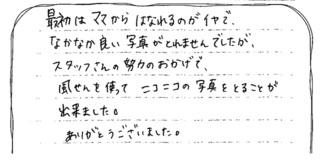 最初は ママから はなれるのが イヤで、
なかなか良い 写真が とれませんでしたが、
スタッフさんの 努力の おかげで、
風せんを 使って ニコニコの 写真を とることが
出来ました。
ありがとうございました。